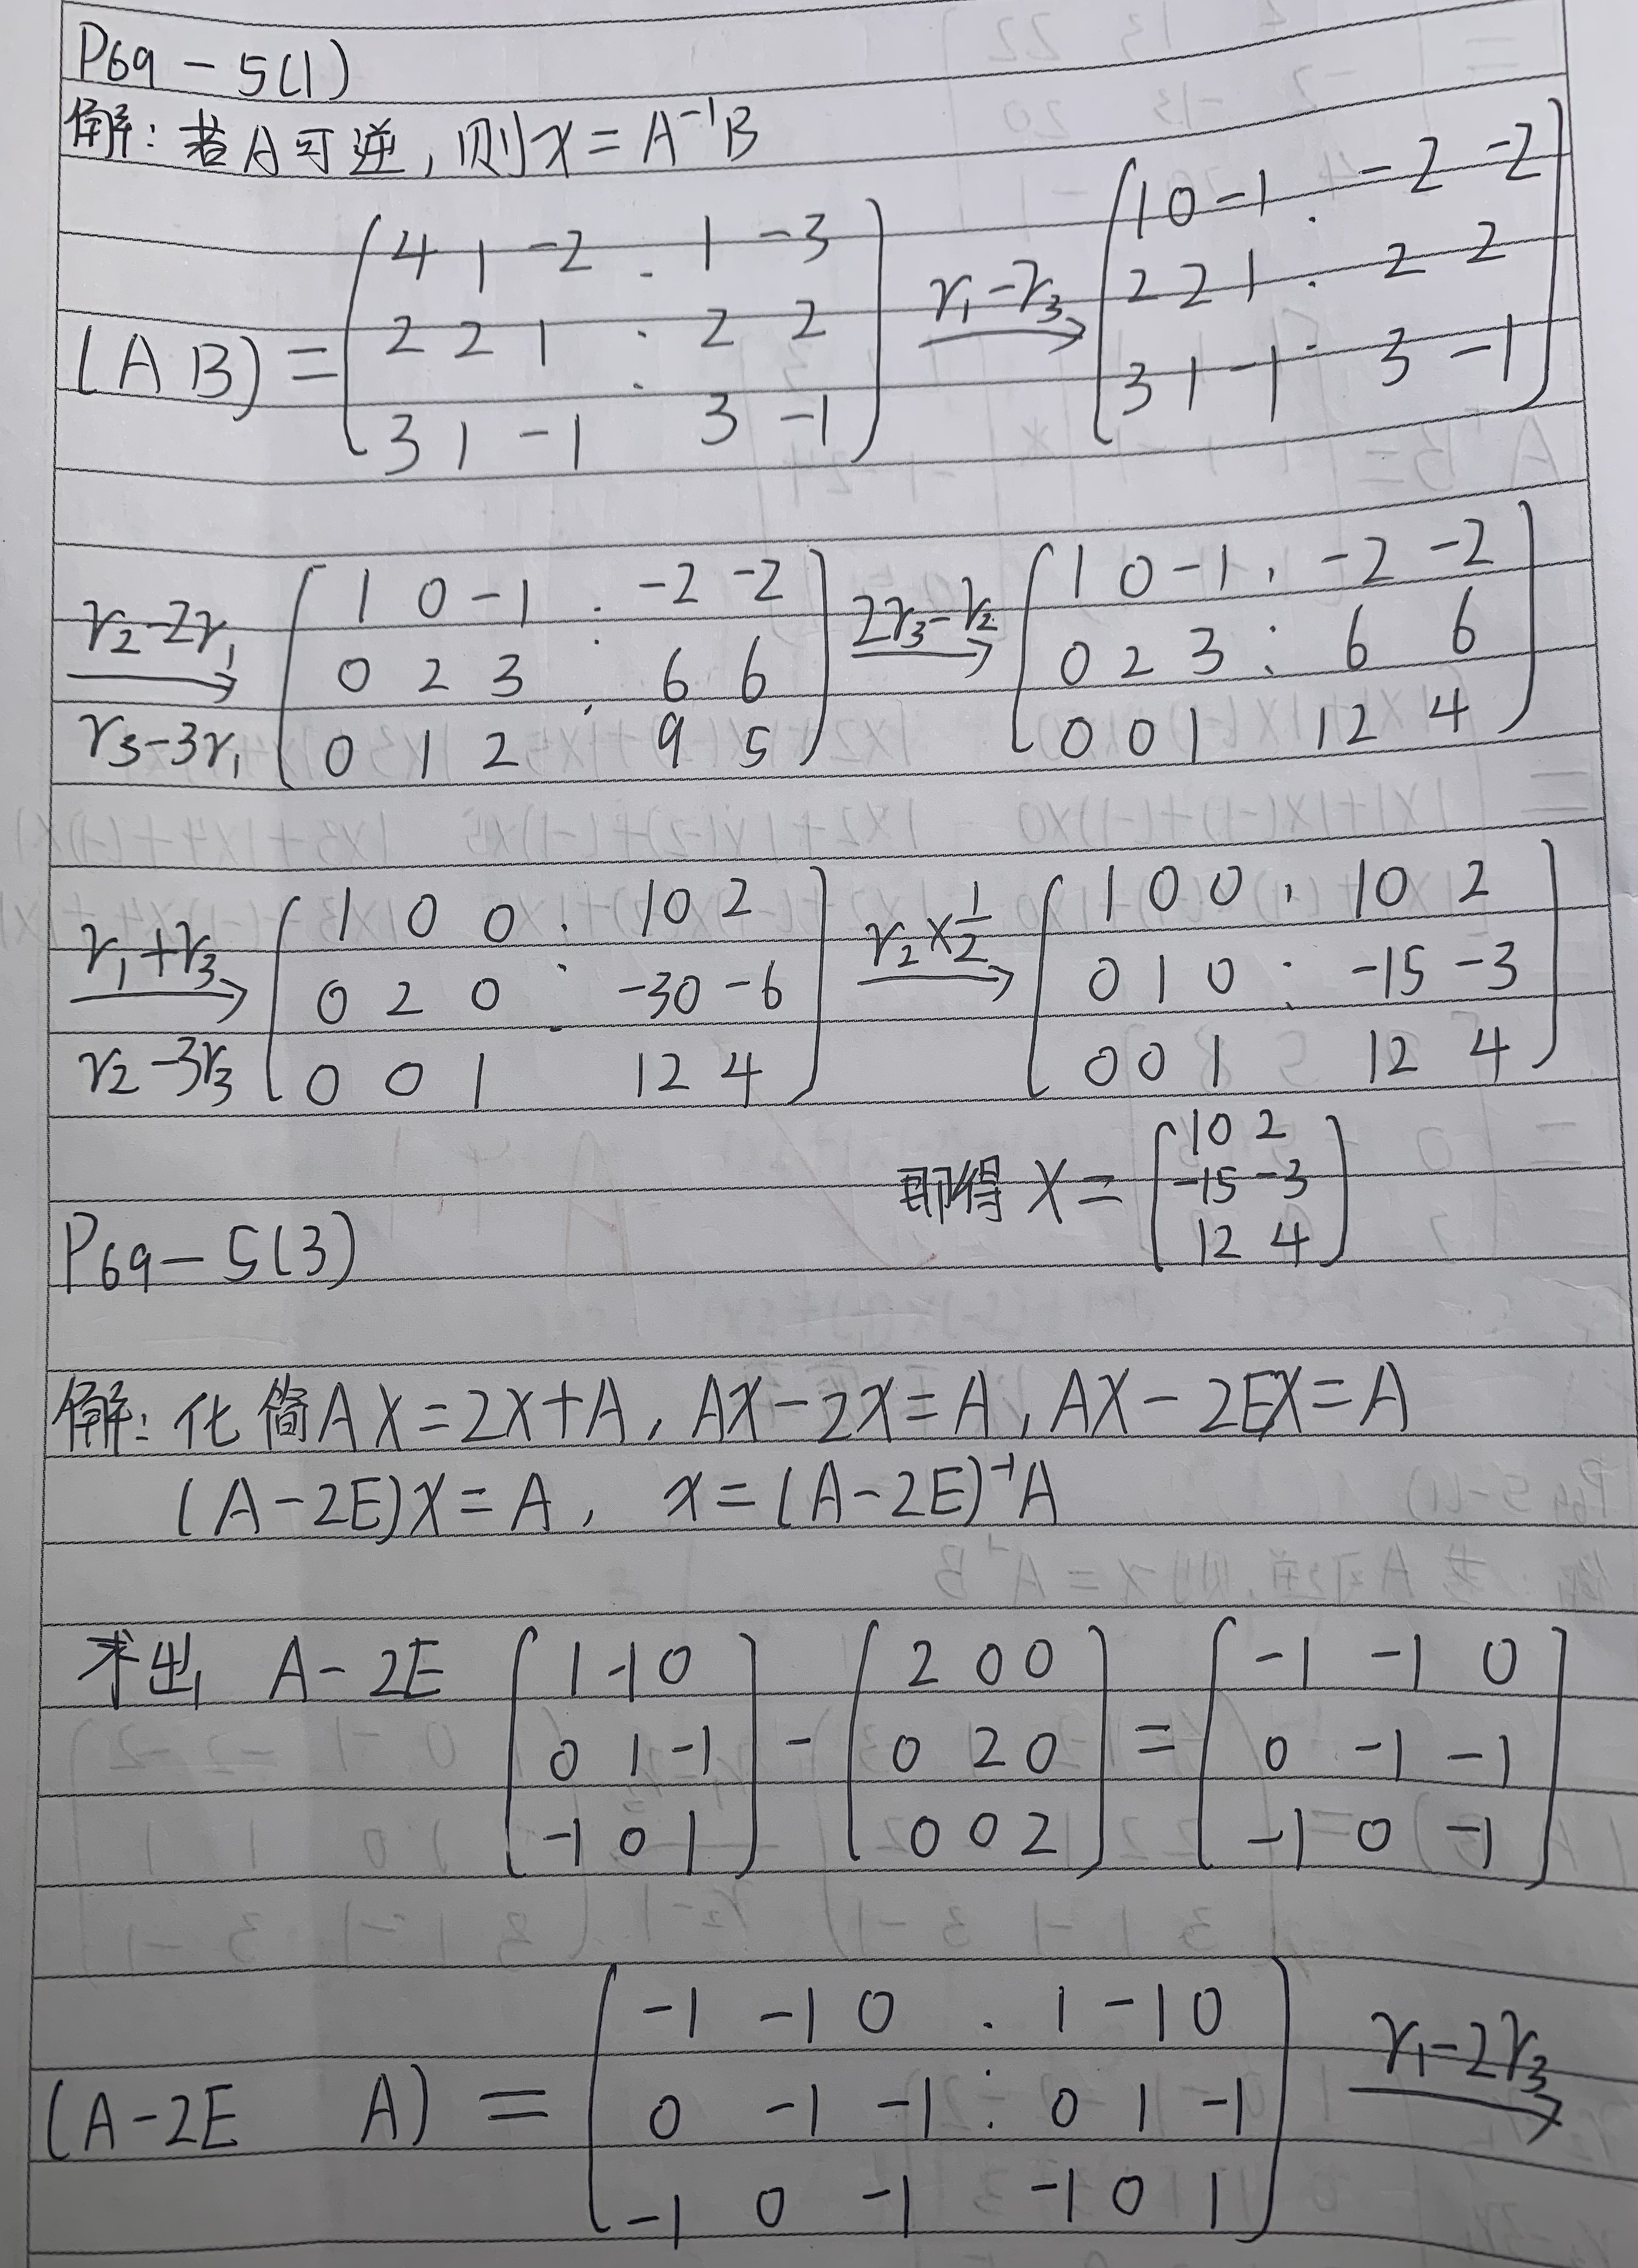 P69-5(1)
解：若A可逆，则x=A⁻¹B
(A B)=(4 1 -2 ⋮ 1 -3
2 2 1 ⋮ 2 2
3 1 -1 3 -1) r₁-r₃→ (1 0 -1 ⋮ -2 -2
2 2 1 ⋮ 2 2
3 1 -1 ⋮ 3 -1)
r₂-2r₁
r₃-3r₁→ (1 0 -1 ⋮ -2 -2
0 2 3 ⋮ 6 6
0 1 2 9 5) 2r₃-r₂→ (1 0 -1 ⋮ -2 -2
0 2 3 ⋮ 6 6
0 0 1 12 4)
r₁+r₃
r₂-3r₃→ (1 0 0 ⋮ 10 2
0 2 0 ⋮ -30 -6
0 0 1 12 4) r₂×1/2→ (1 0 0 ⋮ 10 2
0 1 0 ⋮ -15 -3
0 0 1 12 4)
即得X=(10 2
-15 -3
12 4)
P69-5(3)
解：化简AX=2X+A，AX-2X=A，AX-2EX=A
(A-2E)X=A，x=(A-2E)⁻¹A
求出 A-2E (1 -1 0
0 1 -1
-1 0 1) - (2 0 0
0 2 0
0 0 2) = (-1 -1 0
0 -1 -1
-1 0 -1)
(A-2E A)=(-1 -1 0 ⋮ 1 -1 0
0 -1 -1 ⋮ 0 1 -1
-1 0 -1 -1 0 1) r₁-2r₃→